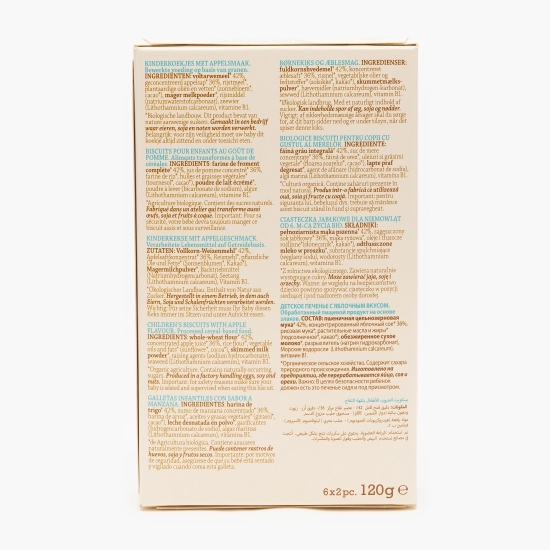 KINDERKOEKJES MET APPELSMAAK.
Bewerkte voeding op basis van granen.
INGREDIËNTEN: voltarwemeel* 42%,
geconcentreerd appelsap* 36%, rijstmeel*,
plantaardige oliën en vetten* (zonnebloem*,
cacao*), mager melkpoeder*, rijsmiddel
(natriumwaterstofcarbonaat), zeewier
(Lithothamnium calcareum), vitamine B1.
*Biologische landbouw. Dit product bevat van
nature aanwezige suikers. Gemaakt in een bedrijf
waar eieren, soja en noten worden verwerkt.
Belangrijk: voor zijn veiligheid moet uw baby dit
koekje altijd zittend en onder toezicht eten.
BISCUITS POUR ENFANTS AU GOÛT DE
POMME. Aliments transformés à base de
céréales. INGRÉDIENTS: farine de froment
complète* 42%, jus de pomme concentré* 36%,
farine de riz*, huiles et graisses végétales*
(tournesol*, cacao*), poudre de lait écrémé*,
poudre à lever (bicarbonate de sodium), algue
(Lithothamnium calcareum), vitamine B1.
*Agriculture biologique. Contient des sucres naturels.
Fabriqué dans un atelier qui transforme aussi
œufs, soja et fruits à coque. Important: Pour sa
sécurité, votre bébé devra toujours manger ce
biscuit assis et sous surveillance.
KINDERKEKSE MIT APFELGESCHMACK.
Verarbeitete Lebensmittel auf Getreidebasis.
ZUTATEN: Vollkorn-Weizenmehl* 42%,
Apfelsaftkonzentrat* 36%, Reismehl*, pflanzliche
Öle und Fette* (Sonnenblumen*, Kakao*),
Magermilchpulver*, Backtriebmittel
(Natriumhydrogencarbonat), Seetang
(Lithothamnium calcareum), Vitamin B1.
*Ökologischer Landbau. Enthält von Natur aus
Zucker. Hergestellt in einem Betrieb, in dem auch
Eiern, Soja und Schalenfrüchten verarbeitet werden.
Wichtig: Für seine Sicherheit muss Ihr Baby diesen
Keks immer im Sitzen und unter Aufsicht essen.
CHILDREN'S BISCUITS WITH APPLE
FLAVOUR. Processed cereal-based food.
INGREDIENTS: whole-wheat flour* 42%,
concentrated apple juice* 36%, rice flour*, vegetable
oils and fats* (sunflower*, cocoa*), skimmed milk
powder*, raising agents (sodium hydrocarbonate),
seaweed (Lithothamnium calcareum), vitamin B1.
*Organic agriculture. Contains naturally occurring
sugars. Produced in a factory handling eggs, soy and
nuts. Important: for safety reasons make sure your
baby is seated and supervised when eating this biscuit.
GALLETAS INFANTILES CON SABOR A
MANZANA. INGREDIENTES: harina de
trigo* 42%, zumo de manzana concentrado* 36%,
harina de arroz*, aceites y grasas vegetales* (girasol*,
cacao*), leche desnatada en polvo*, gasificantes
(hidrogenocarbonato de sodio), algas marinas
(Lithothamnium calcareum), vitamina B1.
*Agricultura ecológica. Contiene azúcares
naturalmente presentes. Puede contener rastros de
huevos, soja y frutos secos. Important: por motivos
de seguridad, asegúrese de que su bebé está sentado
y vigilado cuando coma esta galleta.
BØRNEKIKS OG ÆBLESMAG. INGREDIENSER:
fuldkornshvedemel* 42%, koncentreret
æblesaft* 36%, rismel*, vegetabilske olier og
fedtstoffer* (solsikke*, kakao*), skummetmælks-
pulver*, hævemidler (natriumhydrogenkarbonat),
seaweed (Lithothamnium calcareum), vitamin B1.
*Økologisk landbrug. Med et naturligt indhold af
sukker. Kan indeholde spor af æg, soja og nødder.
Vigtigt: af sikkerhedsmæssige årsager skal du sørge
for, at dit barn sidder ned og er under opsyn, når det
spiser denne kiks.
BIOLOGICE BISCUIȚI PENTRU COPII CU
GUSTUL AL MERELOR. INGREDIENTE:
făină grâu integrală* 42%, suc de mere
concentrat* 36%, făină de orez*, uleiuri și grăsimi
vegetale* (floarea soarelui*, cacao*), lapte praf
degresat*, agent de afânare (hidrocarbonat de sodiu),
algă marină (Lithothamnium calcareum), vitamina B1.
*Cultură organică. Conține zaharuri prezente în
mod natural. Produs într-o fabrică ce utilizează
ouă, soia și fructe cu coajă. Important: pentru
siguranța lui, bebelușul dvs. trebuie să mănânce
acest biscuit întotdeauna așezat și supravegheat.
CIASTECZKA JABŁKOWE DLA NIEMOWLĄT
OD 6. M-CA ŻYCIA BIO. SKŁADNIKI:
pełnoziarnista mąka pszenna* 42%, zagęszczony
sok jabłkowy* 36%, mąka ryżowa*, oleje i tłuszcze
roślinne* (słonecznik*, kakao*), odtłuszczone
mleko w proszku*, substancje spulchniające
(węglany sodu), wodorosty (Lithothamnium
calcareum), witamina B1.
*Z rolnictwa ekologicznego. Zawiera naturalnie
występujące cukry. Może zawierać jaja, soję i
orzechy. Ważne: ze względu na bezpieczeństwo
dziecko powinno spożywać ciasteczko w pozycji
siedzącej i pod nadzorem osoby dorosłej.
ДЕТСКОЕ ПЕЧЕНЬЕ С ЯБЛОЧНЫМ ВКУСОМ.
Обработанный пищевой продукт на основе
злаков. СОСТАВ: пшеничная цельнозерновая
мука* 42%, концентрированный яблочный сок* 36%,
рисовая мука*, растительные масла и жиры*
(подсолнечное*, какао*), обезжиренное сухое
молоко*, разрыхлитель (натрия гидрокарбонат),
Морские водоросли (Lithothamnium calcareum),
витамин B1.
*Органическое сельское хозяйство. Содержит сахара
природного происхождения. Изготовлено на
предприятии, где перерабатываются яйца, соя и
орехи. Важно: В целях безопасности ребенок
должен есть это печенье сидя и под присмотром.
6x2pc. 120g e